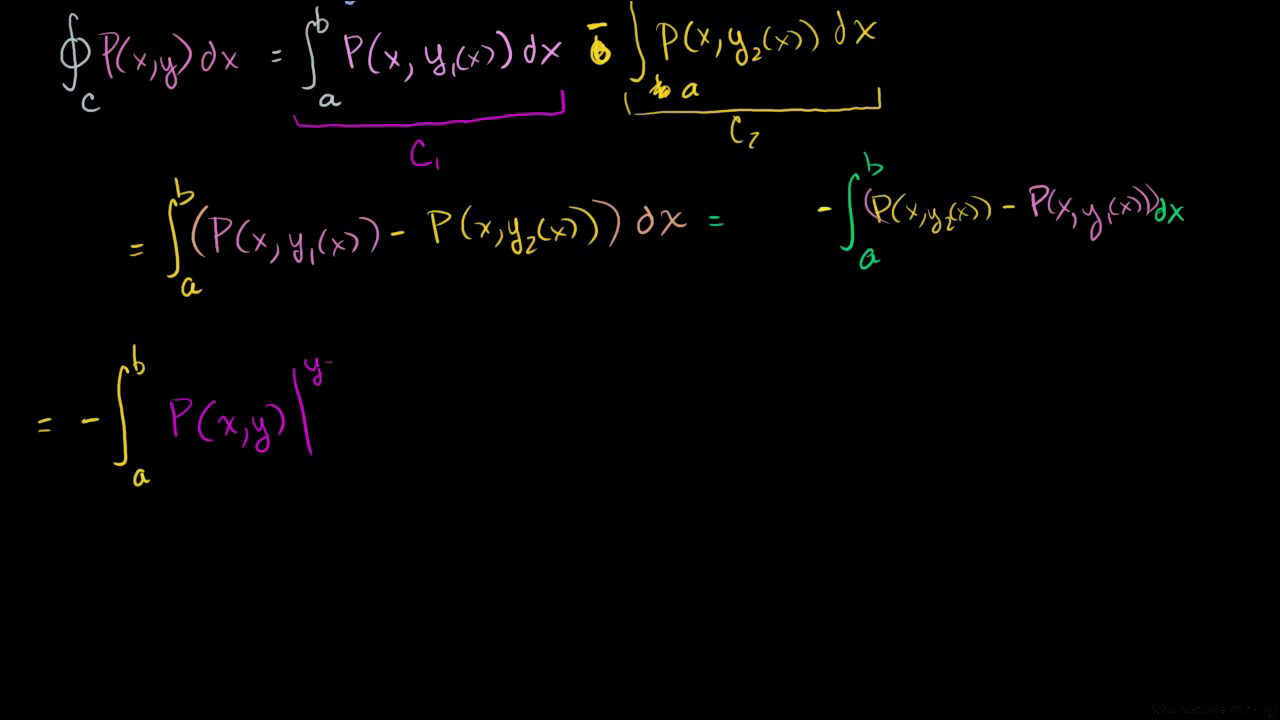 ∮_C P(x,y)dx = ∫_a^b P(x, y₁(x))dx - ∫_a P(x,y₂(x))dx
C₁ C₂
= ∫_a^b (P(x,y₁(x)) - P(x,y₂(x))) dx = - ∫_a^b (P(x,y₂(x)) - P(x,y₁(x)))dx
= - ∫_a^b P(x,y)|^{y-}